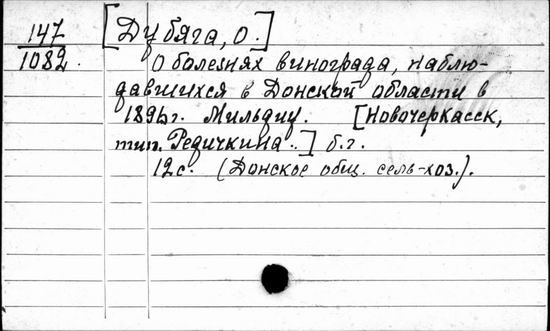 147
1082.
[Дубяга, О.]
О болезнях винограда, наблю-
давшихся в Донской области в
1896г. Мильдиу. [Новочеркасск,
тип. Редичкина..] б.г.
12с. (Донское общ. сель-хоз.).